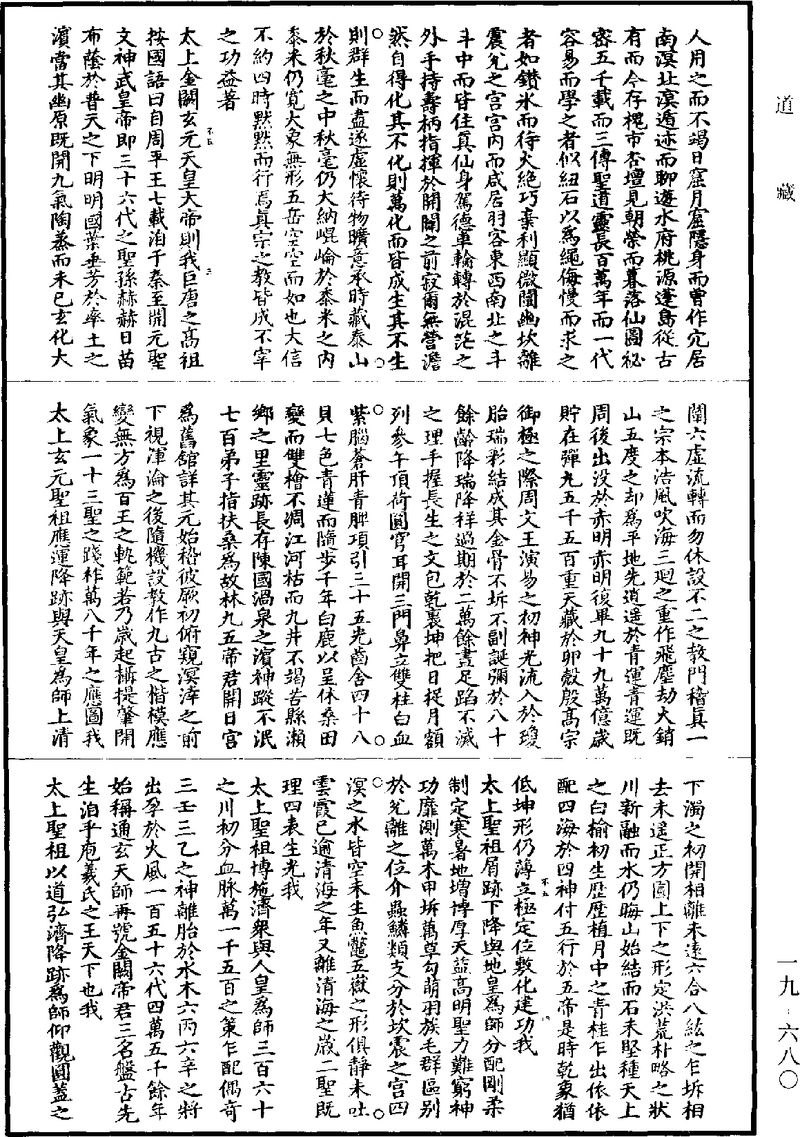 道藏
一九·六八〇
人用之而不竭日窟月窟隱身而曾作穴居
南溟北溟遁迹而聊遊水府桃源蓬島從古
有而今存槐市杏壇見朝榮而暮落仙圖祕
密五千載而三傳聖道靈長百萬年而一代
容易而學之者似紐石以爲繩侮慢而求之
者如鑽氷而待火絶巧棄利顯微闡幽坎離
震兌之宮宮內而咸居羽客東西南北之斗
斗中而皆住眞仙身駕德車輪轉於混茫之
外手持壽柄指揮於開闢之前寂爾無營澹
然自得化其不化則萬化而皆成生其不生
則群生而盡遂虛懷待物曠意承時藏泰山
於秋毫之中秋毫仍大納崐崘於黍米之內
黍米仍寬大象無形五岳空空而如也大信
不約四時默默而行焉眞宗之教皆成不宰
之功益著
太上金闕玄元天皇大帝則我巨唐之髙祖
按國語曰自周平王七載洎于秦至開元聖
文神武皇帝即三十六代之聖孫赫赫日苗
布蔭於普天之下明明國葉垂芳於率土之
濱當其幽原既開九氣陶蒸而未已玄化大
闡六虛流轉而勿休設不二之教門稽眞一
之宗本浩風吹海三廻之重作飛塵劫火銷
山五度之却爲平地先逍遥於青運青運既
周後出没於赤明赤明復畢九十九萬億歲
貯在彈丸五千五百重天藏於卵㱿殷髙宗
御極之際周文王演易之初神光流入於瓊
胎瑞彩結成其金骨不坼不副誕彌於八十
餘齡降瑞降祥過期於二萬餘晝足蹈不滅
之理手握長生之文包乾裹坤把日捉月額
列參午頂荷圓穹耳開三門鼻立雙柱白血
紫腦蒼肝青脾項引三十五光齒含四十八
貝七色青蓮而隨步千年白鹿以呈休桑田
變而雙檜不凋江河枯而九井不竭苦縣瀨
鄉之里靈跡長存陳國渦泉之濱神蹤不泯
七百弟子指扶桑爲故林九五帝君開日宮
爲舊舘詳其元始稽彼厥初俯窺溟涬之前
下視渾淪之後隨機設教作九古之楷模應
變無方爲百王之軌範若乃歲起攝提肇開
氣象一十三聖之踐祚萬八千年之應圖我
太上玄元聖祖應運降跡與天皇爲師上清
下濁之初開相離未遠六合八紘之乍坼相
去未遥正方圓上下之形定洪荒朴略之狀
川新融而水仍晦山始結而石未堅種天上
之白榆初生歷歷植月中之青桂乍出依依
配四海於四神付五行於五帝是時乾象猶
低坤形仍薄立極定位敷化建功我
太上聖祖屑跡下降與地皇爲師分配剛柔
制定寒暑地増博厚天益高明聖力難窮神
功靡測萬木甲坼萬草勾萌羽族毛群區別
於兌離之位介蟲鱗類支分於坎震之宮四
溟之水皆空未生魚鼈五嶽之形俱靜未吐
雲霞已逾清海之年又離清海之歲二聖既
理四表生光我
太上聖祖博施濟衆與人皇爲師三百六十
之川初分血脉萬一千五百之策乍配偶竒
三壬三乙之神離胎於水木六丙六辛之將
出孕於火風一百五十六代四萬五千餘年
始稱通玄天師再號金闕帝君三名盤古先
生洎乎庖羲氏之王天下也我
太上聖祖以道弘濟降跡爲師仰觀圓蓋之